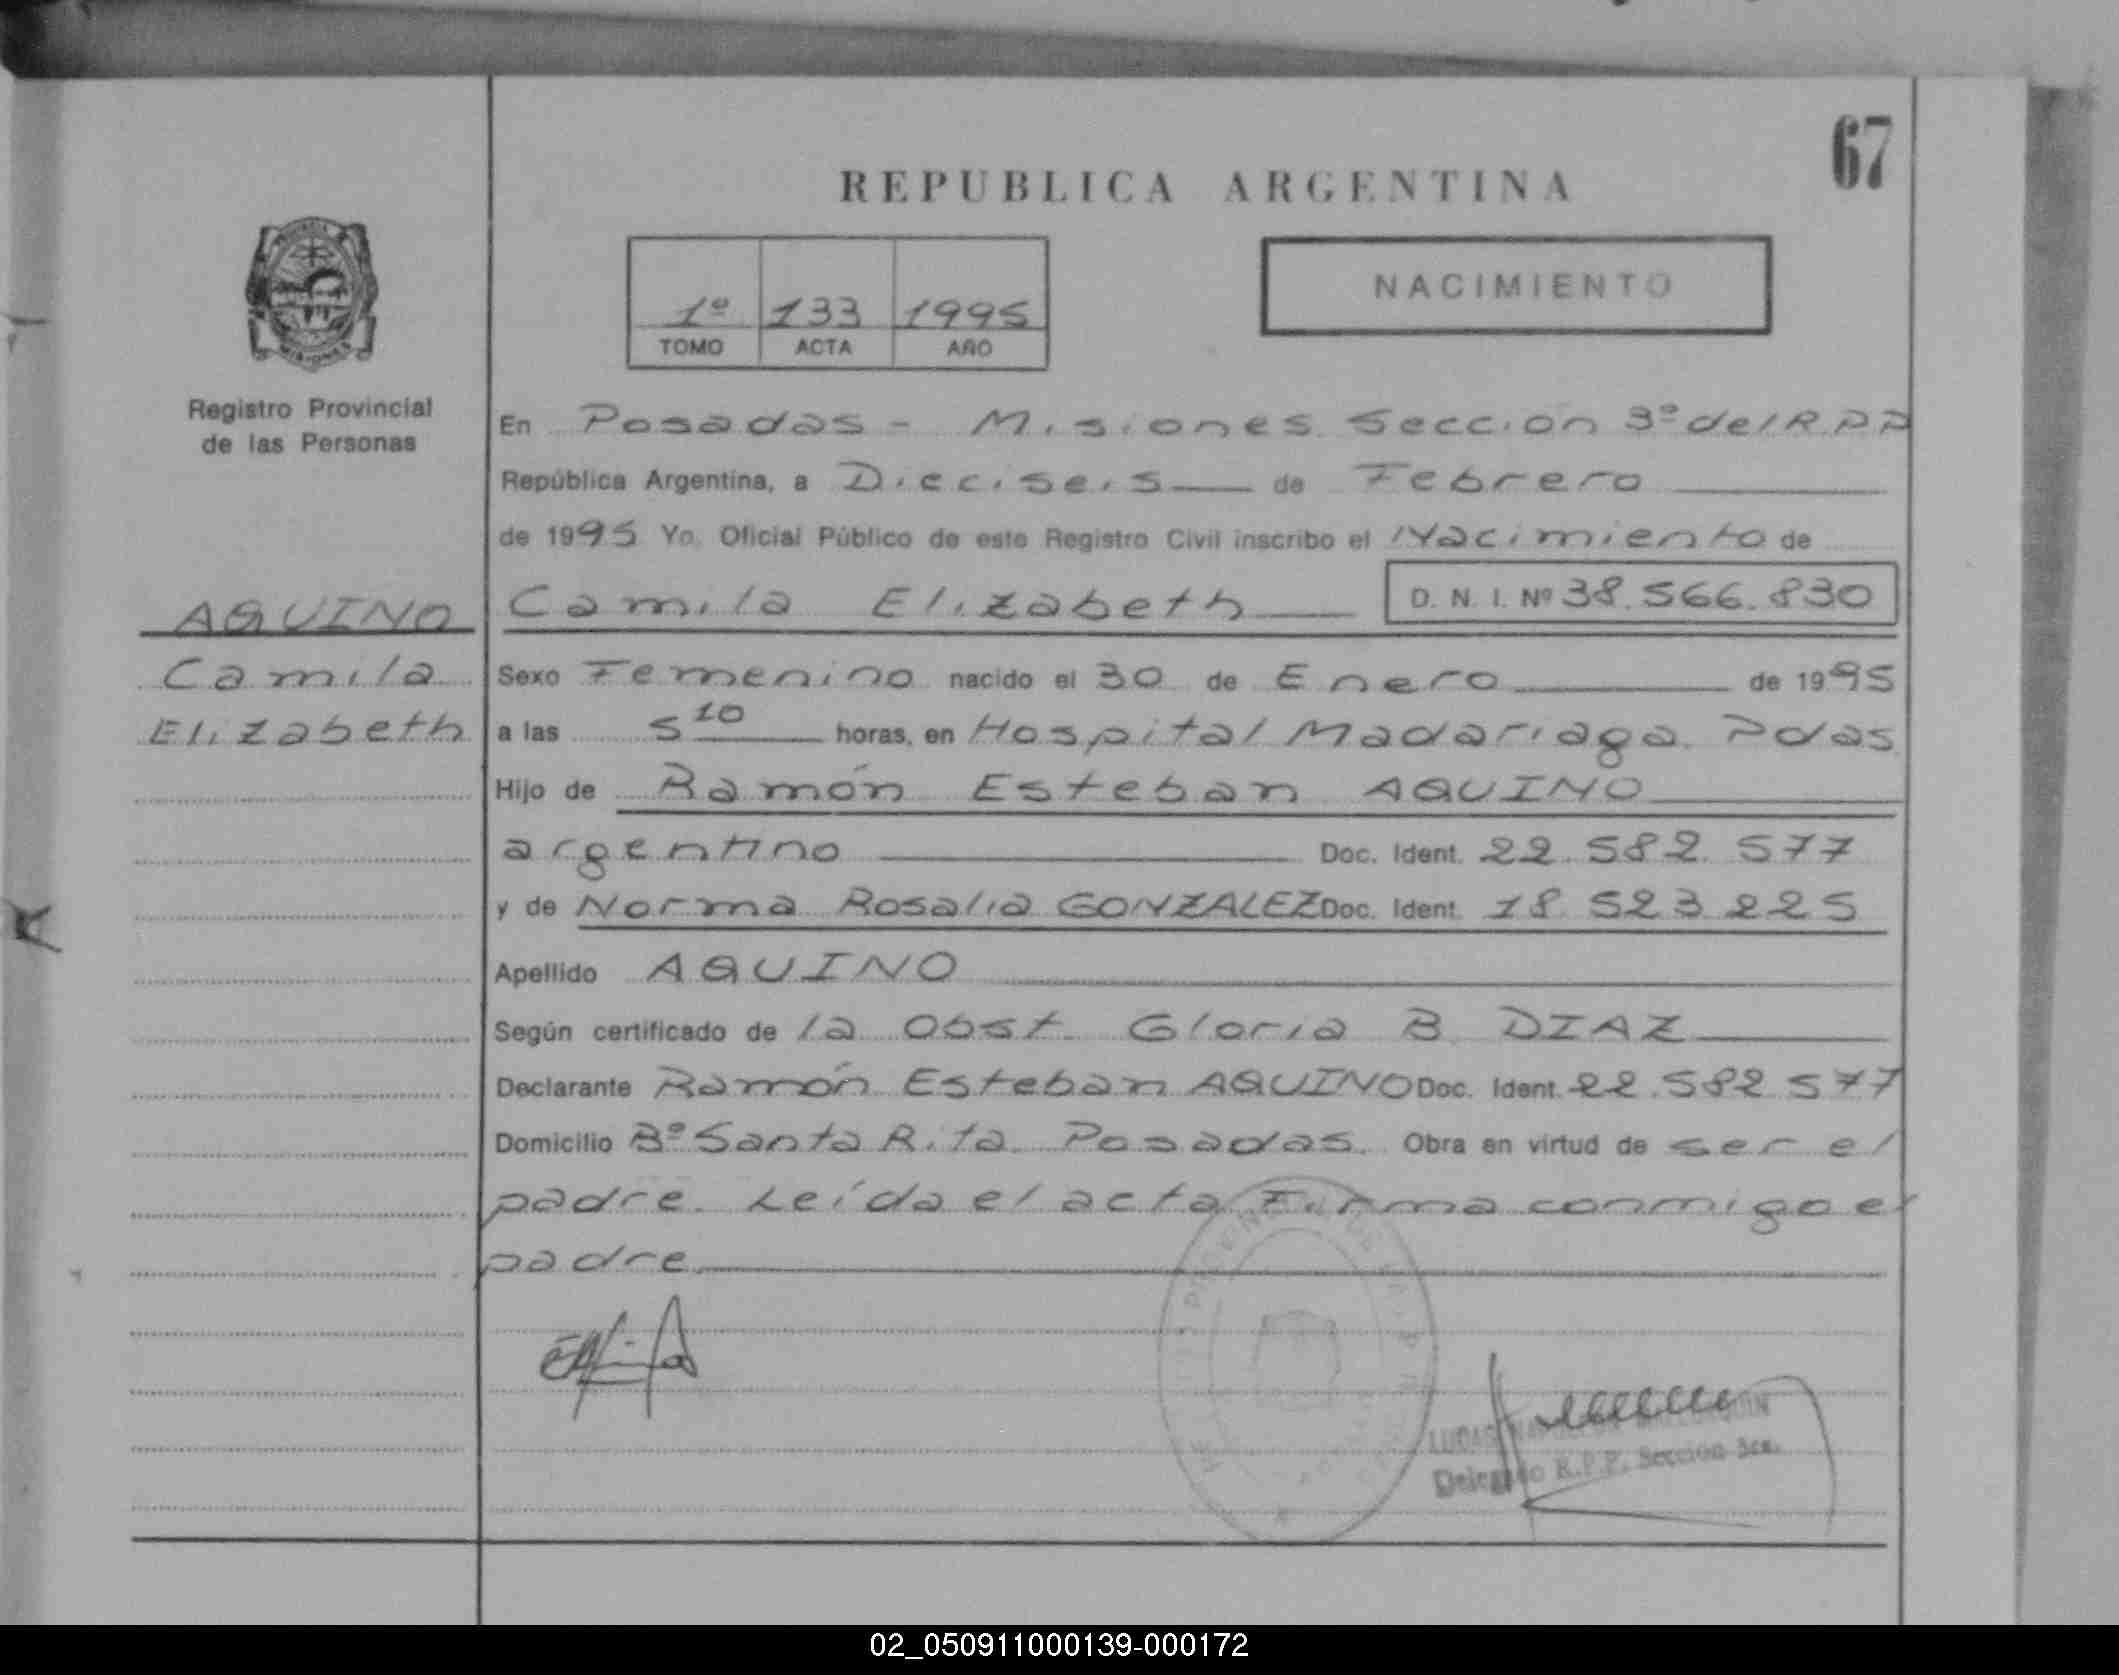 67
REPUBLICA ARGENTINA
1º 133 1995
TOMO ACTA AÑO
NACIMIENTO
PROVINCIA
MISIONES
Registro Provincial
de las Personas
En Posadas - Misiones. Sección 3º del R.P.P
República Argentina, a Dieciseis de Febrero
de 1995 Yo, Oficial Público de este Registro Civil inscribo el Nacimiento de
AQUINO Camila Elizabeth D. N. I. Nº 38.566.830
Camila Sexo Femenino nacido el 30 de Enero de 1995
Elizabeth a las 5 10 horas, en Hospital Madariaga. Pdas
Hijo de Ramón Esteban AQUINO
argentino Doc. Ident. 22.582.577
y de Norma Rosalia GONZALEZ Doc. Ident. 18.523.225
Apellido AQUINO
Según certificado de la Obst. Gloria B. DIAZ
Declarante Ramón Esteban AQUINO Doc. Ident. 22.582.577
Domicilio Bº Santa Rita. Posadas. Obra en virtud de ser el
padre. Leída el acta Firma conmigo el
padre.
LUCAS
Delegado R.P.P. Sección 3ra.
02_050911000139-000172